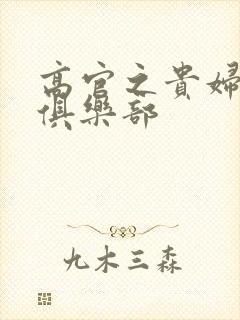 高官之貴婦
俱樂部
九木三森